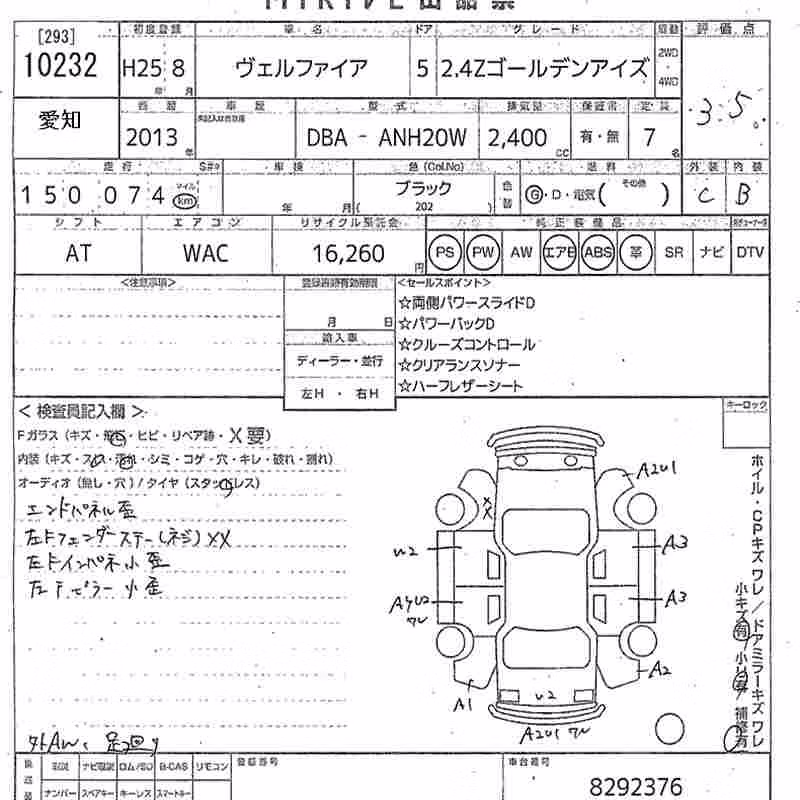 [293]
10232
初度登録
車名
ドア
グレード
駆動
評価点
H25 8
年 月
ヴェルファイア
5
2.4Zゴールデンアイズ
2WD
4WD
3.5
愛知
車歴
型式
排気量
保証書
定員
2013 年
DBA - ANH20W
2,400 CC
有・無
7 名
走行
車検
色(Col.No)
燃料
外装
内装
150074
マイル
km
年 月
ブラック
202
色替
G・D・電気( その他 )
C
B
シフト
エアコン
リサイクル預託金
純正装備品
AT
WAC
16,260 円
PS PW AW エアB ABS 革 SR ナビ DTV
<注意事項>
登録書類有効期限
月 日
輸入車
ディーラー・並行
左H ・ 右H
<セールスポイント>
☆両側パワースライドD
☆パワーバックD
☆クルーズコントロール
☆クリアランスソナー
☆ハーフレザーシート
キーロック
<検査員記入欄>
Fガラス(キズ・飛石・ヒビ・リペア跡・X要)
内装(キズ・スレ・汚れ・シミ・コゲ・穴・キレ・破れ・割れ)
オーディオ(無し・穴)/タイヤ(スタッドレス)
エンドパネル歪
左Fフェンダーステー(ネジ)XX
左Fインパネ小歪
左Fピラー小歪
外AW、足回り
A2U1
XX
U2
A3
AYU2
ワレ
A3
A2
A1
U2
A2U1 ワレ
ホイル・CPキズワレ/ドアミラーキズワレ
小キズ有 小凹有 補修有
ナビ取説
ロム/SD
B-CAS
リモコン
ナンバー
スペアキー
キーレス
スマートキー
登録番号
車台番号
8292376